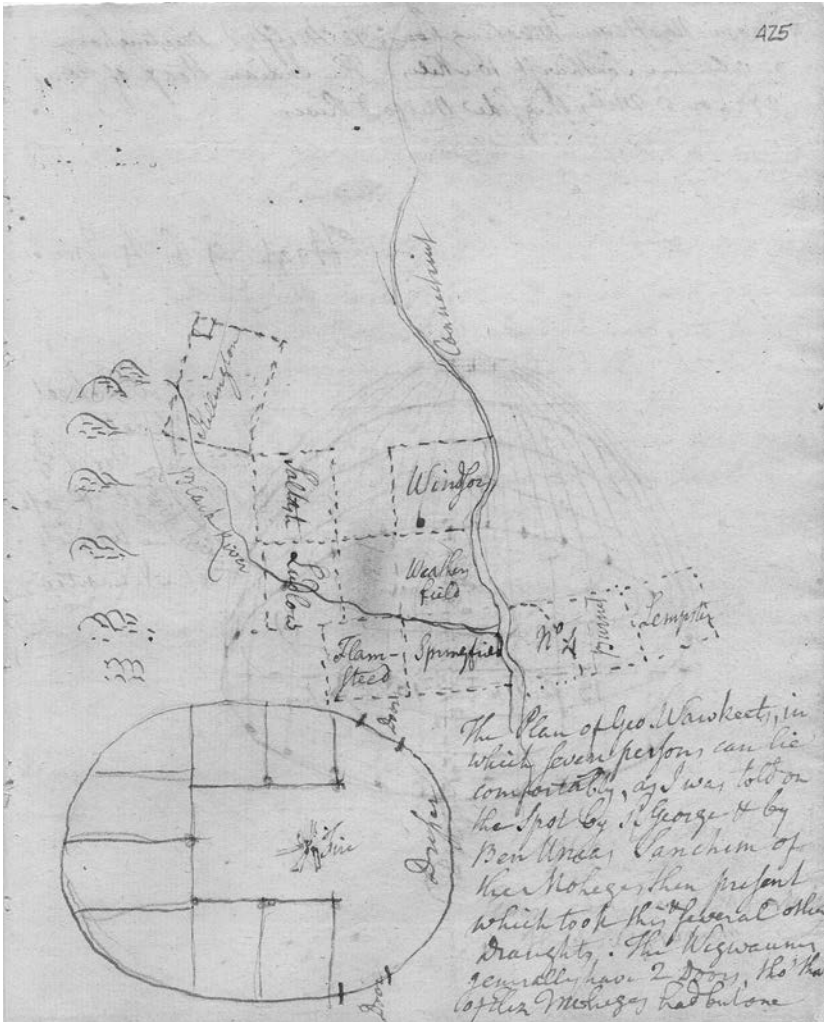 425
Connecticut
Saltash
Windsor
Black River
Ludlow
Weathers
field
Flam-
steed
Springfield
No
Lempster
Door
The Plan of Geo. Wawkeets, in
which seven persons can lie
comfortably, as I was told on
the Spot by sd. George & by
Ben Uncas Sanchim of
the Moheges then present
which took this & several other
Draughts. The Wigwaums
generally have 2 Doors, tho' tha
of the Moheges had but one
Fire
Dresser
Door